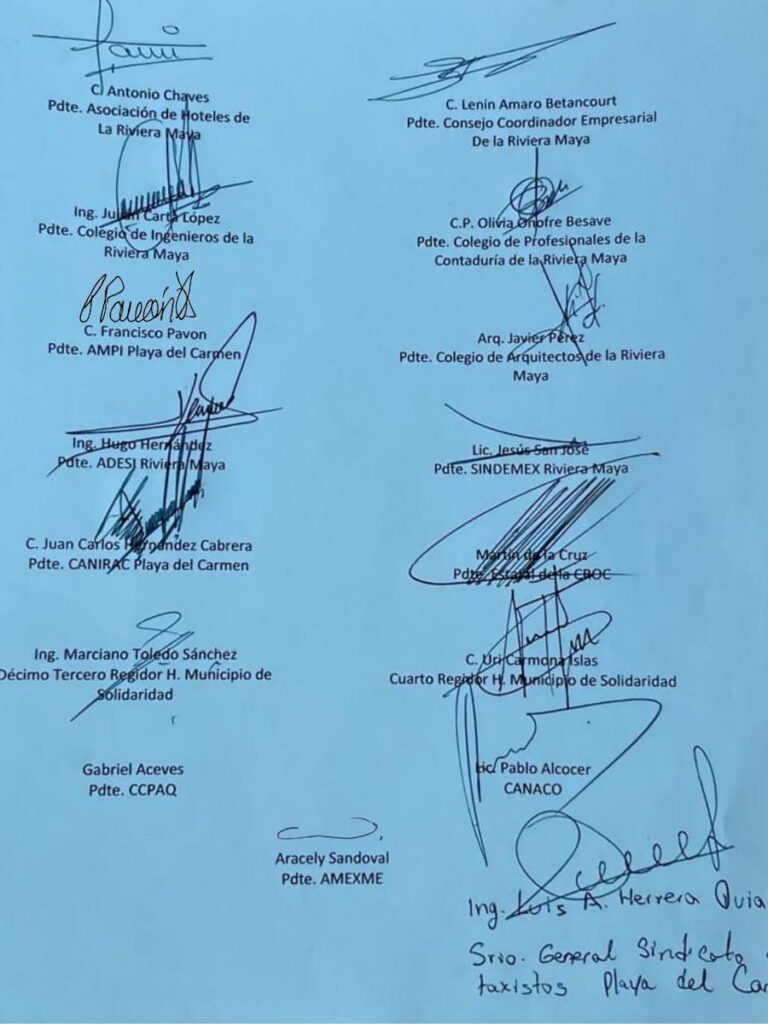 C. Antonio Chaves
Pdte. Asociación de Hoteles de
La Riviera Maya
C. Lenin Amaro Betancourt
Pdte. Consejo Coordinador Empresarial
De la Riviera Maya
Ing. Julián Carta López
Pdte. Colegio de Ingenieros de la
Riviera Maya
C.P. Olivia Onofre Besave
Pdte. Colegio de Profesionales de la
Contaduría de la Riviera Maya
C. Francisco Pavon
Pdte. AMPI Playa del Carmen
Arq. Javier Pérez
Pdte. Colegio de Arquitectos de la Riviera
Maya
Ing. Hugo Hernández
Pdte. ADESI Riviera Maya
Lic. Jesús San José
Pdte. SINDEMEX Riviera Maya
C. Juan Carlos Hernández Cabrera
Pdte. CANIRAC Playa del Carmen
Martín de la Cruz
Pdte. Estatal de la CROC
Ing. Marciano Toledo Sánchez
Décimo Tercero Regidor H. Municipio de
Solidaridad
C. Uri Carmona Islas
Cuarto Regidor H. Municipio de Solidaridad
Gabriel Aceves
Pdte. CCPAQ
Lic. Pablo Alcocer
CANACO
Aracely Sandoval
Pdte. AMEXME
Ing. Luis A. Herrera
Srio. General Sindicato
taxistos Playa del